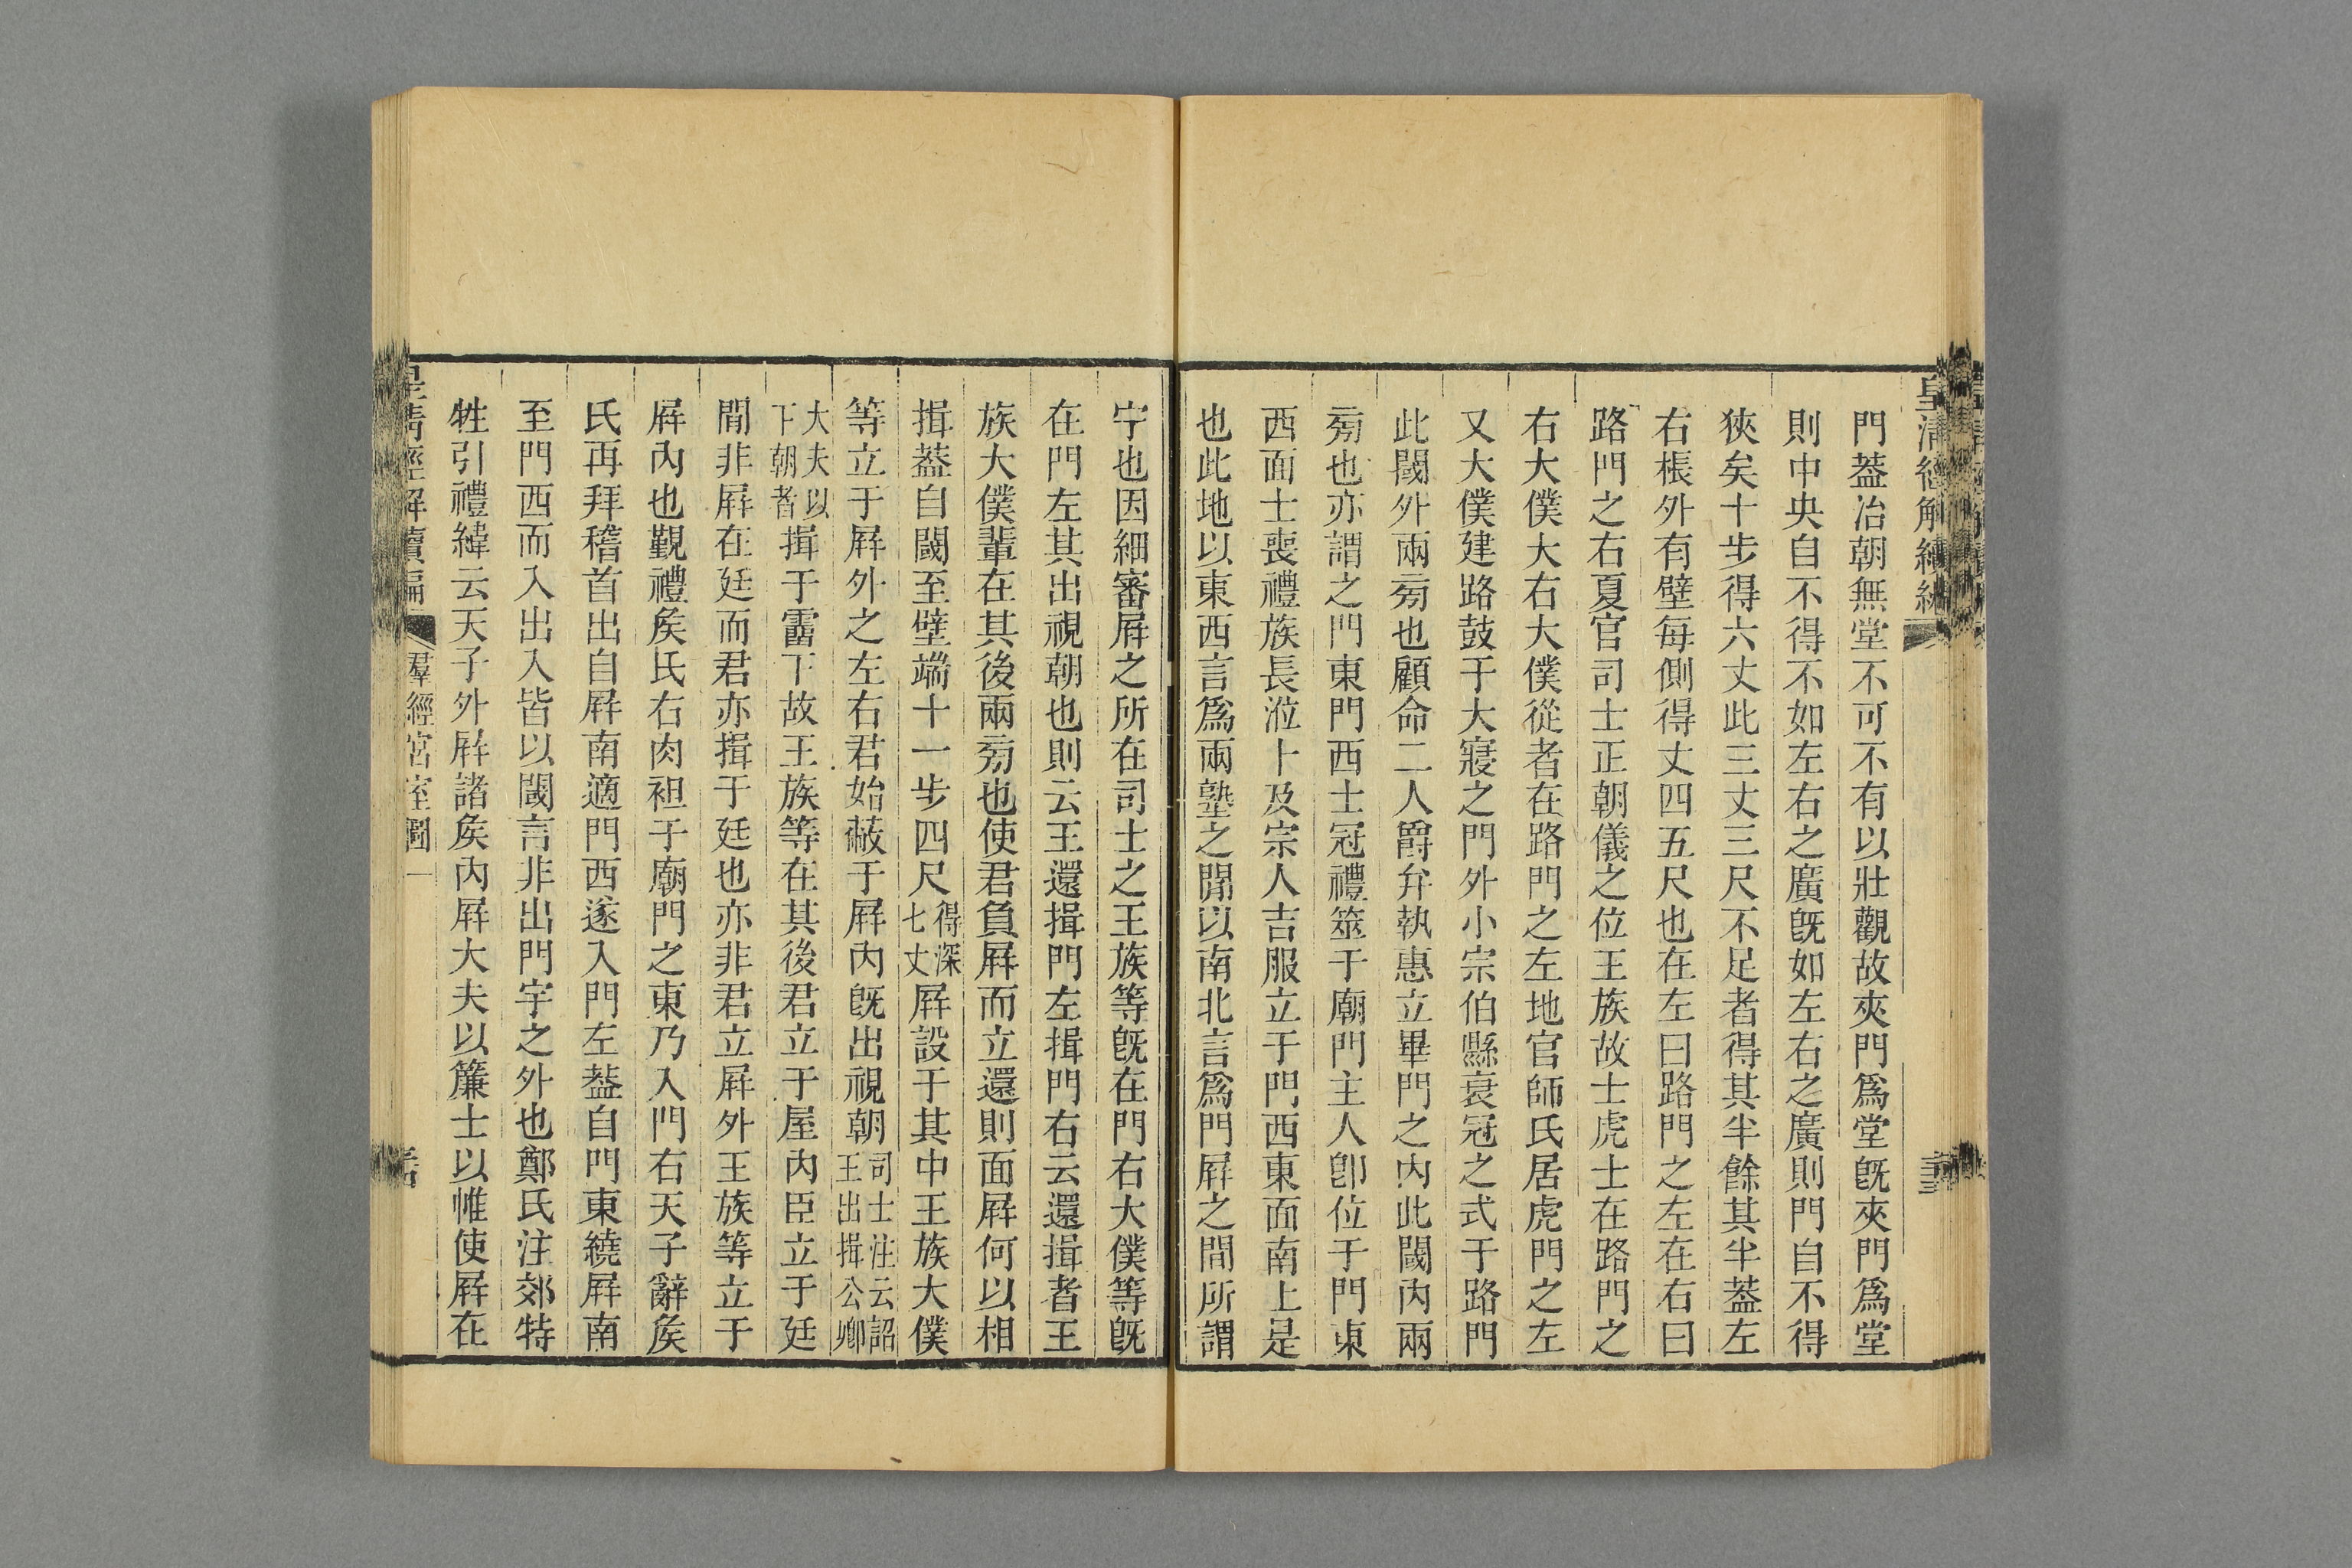 皇清經解續編
門葢治朝無堂不可不有以壯觀故夾門爲堂旣夾門爲堂
則中央自不得不如左右之廣旣如左右之廣則門自不得
狹矣十步得六丈此三丈三尺不足者得其半餘其半葢左
右棖外有壁每側得丈四五尺也在左曰路門之左在右曰
路門之右夏官司士正朝儀之位王族故士虎士在路門之
右大僕大右大僕從者在路門之左地官師氏居虎門之左
又大僕建路鼓于大寢之門外小宗伯縣衰冠之式于路門
此閾外兩旁也顧命二人爵弁執惠立畢門之內此閾內兩
旁也亦謂之門東門西士冠禮筮于廟門主人卽位于門東
西面士喪禮族長涖卜及宗人吉服立于門西東面南上是
也此地以東西言爲兩塾之閒以南北言爲門屛之間所謂
宁也因細審屛之所在司士之王族等旣在門右大僕等旣
在門左其出視朝也則云王還揖門左揖門右云還揖者王
族大僕輩在其後兩旁也使君負屛而立還則面屛何以相
揖葢自閾至壁端十一步四尺得深七丈屛設于其中王族大僕
等立于屛外之左右君始蔽于屛內旣出視朝司士注云詔王出揖公卿
大夫以下朝者揖于霤下故王族等在其後君立于屋內臣立于廷
間非屛在廷而君亦揖于廷也亦非君立屛外王族等立于
屛內也覲禮矦氏右肉袒于廟門之東乃入門右天子辭矦
氏再拜稽首出自屛南適門西遂入門左葢自門東繞屛南
至門西而入出入皆以閾言非出門宇之外也鄭氏注郊特
牲引禮緯云天子外屛諸矦內屛大夫以簾士以帷使屛在
皇清經解續編
羣經宮室圖一